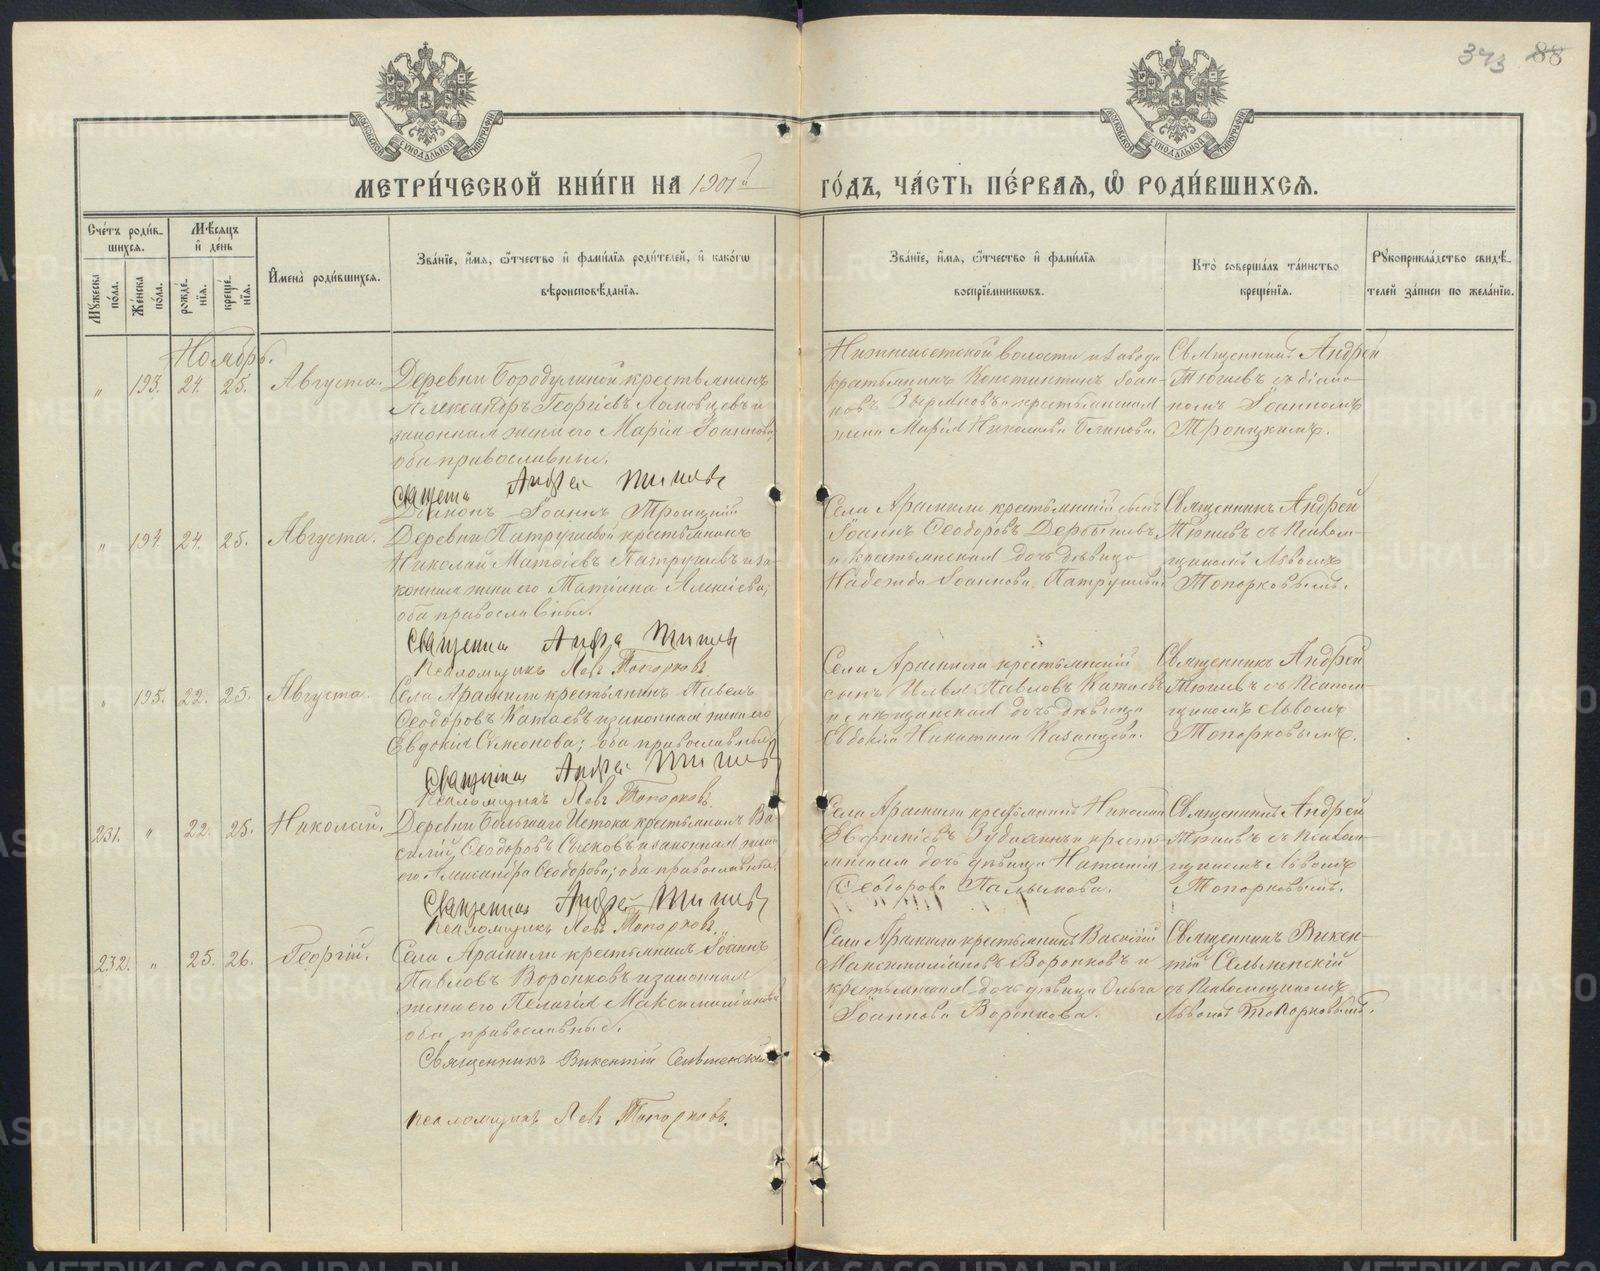 373 88
МОСКОВСКОЙ СѴНОДАЛЬНОЙ ТИПОГРАФІИ
МОСКОВСКОЙ СѴНОДАЛЬНОЙ ТИПОГРАФІИ
МЕТРИ́ЧЕСКОЙ КНИ́ГИ НА 1901й ГО́ДЪ, ЧА́СТЬ ПЕ́РВАѦ, Ѡ҆ РОДИ́ВШИХСѦ.
Сче́тъ роди́в-
шихсѧ.
Мꙋжеска по́ла.
Же́нска по́ла.
Мѣ́сѧцъ
и҆ де́нь
рожде́нїѧ.
креще́нїѧ.
И҆мена̀ роди́вшихсѧ.
Зва́нїе, и҆́мѧ, ѻ҆́тчество и҆ фами́лїѧ роди́телей, и҆ како́гѡ
вѣроисповѣ́данїѧ.
Зва́нїе, и҆́мѧ, ѻ҆́тчество и҆ фами́лїѧ
воспрїе́мникѡвъ.
Кто̀ соверша́лъ та́инство
креще́нїѧ.
Рꙋкоприкла́дство свидѣ́-
телей за́писи по жела́нїю.
Ноябрь.
„ 193. 24. 25. Августа.
Деревни Бородулиной крестьянинъ
Александръ Георгіевъ Ломовцевъ и
законная жена его Марія Іоаннова
оба православные.
Священникъ Андрей
Діаконъ Іоаннъ Троицкій
Нижнеисетской волости и завода
крестьянинъ Константинъ Іоан-
новъ Зыряновъ и крестьянская
жена Марія Николаева Блинова.
Священникъ Андрей
съ діако-
номъ Іоанномъ
Троицкимъ.
„ 194. 24. 25. Августа.
Деревни Патрушевой крестьянинъ
Николай Матѳіевъ Патрушевъ и за-
конная жена его Татіана Алексіева;
оба православные.
Священникъ Андрей
Псаломщикъ Левъ Топорковъ
Села Арамили крестьянскій сынъ
Іоаннъ Ѳеодоровъ Дербышевъ
и крестьянская дочь дѣвица
Надежда Іоаннова Патрушева
Священникъ Андрей
съ Псалом-
щикомъ Львомъ
Топорковымъ.
„ 195. 22. 25. Августа.
Села Арамили крестьянинъ Павелъ
Ѳеодоровъ Катаевъ и законная жена его
Евдокія Симеонова; оба православные
Священникъ Андрей
Псаломщикъ Левъ Топорковъ.
Села Арамили крестьянскій
сынъ Илья Павловъ Катаевъ
и мѣщанская дочь дѣвица
Евдокія Никитина Казанцева.
Священникъ Андрей
съ Псалом-
щикомъ Львомъ
Топорковымъ.
231. „ 22. 25. Николай.
Деревни Большаго Истока крестьянинъ Ва-
силій Ѳеодоровъ Сысковъ и законная жена
его Александра Ѳеодорова; оба православные.
Священникъ Андрей
Псаломщикъ Левъ Топорковъ.
Села Арамили крестьянинъ Николай
и кресть-
янская дочь дѣвица Наталія
Ѳеодорова Палымова.
Священникъ Андрей
съ Псалом-
щикомъ Львомъ
Топорковымъ.
232. „ 25. 26. Георгій.
Села Арамили крестьянинъ Іоаннъ
Павловъ Воронковъ и законная
жена его Пелагія Максимиліанова
оба православные.
Священникъ Викентій Сельменскій
Псаломщикъ Левъ Топорковъ.
Села Арамили крестьянинъ Василій
Максимиліановъ Воронковъ и
крестьянская дочь дѣвица Ольга
Іоаннова Воронкова.
Священникъ Викен-
тій Сельменскій
съ Псаломщикомъ
Львомъ Топорковымъ.
METRIKI.GASO-URAL.RU